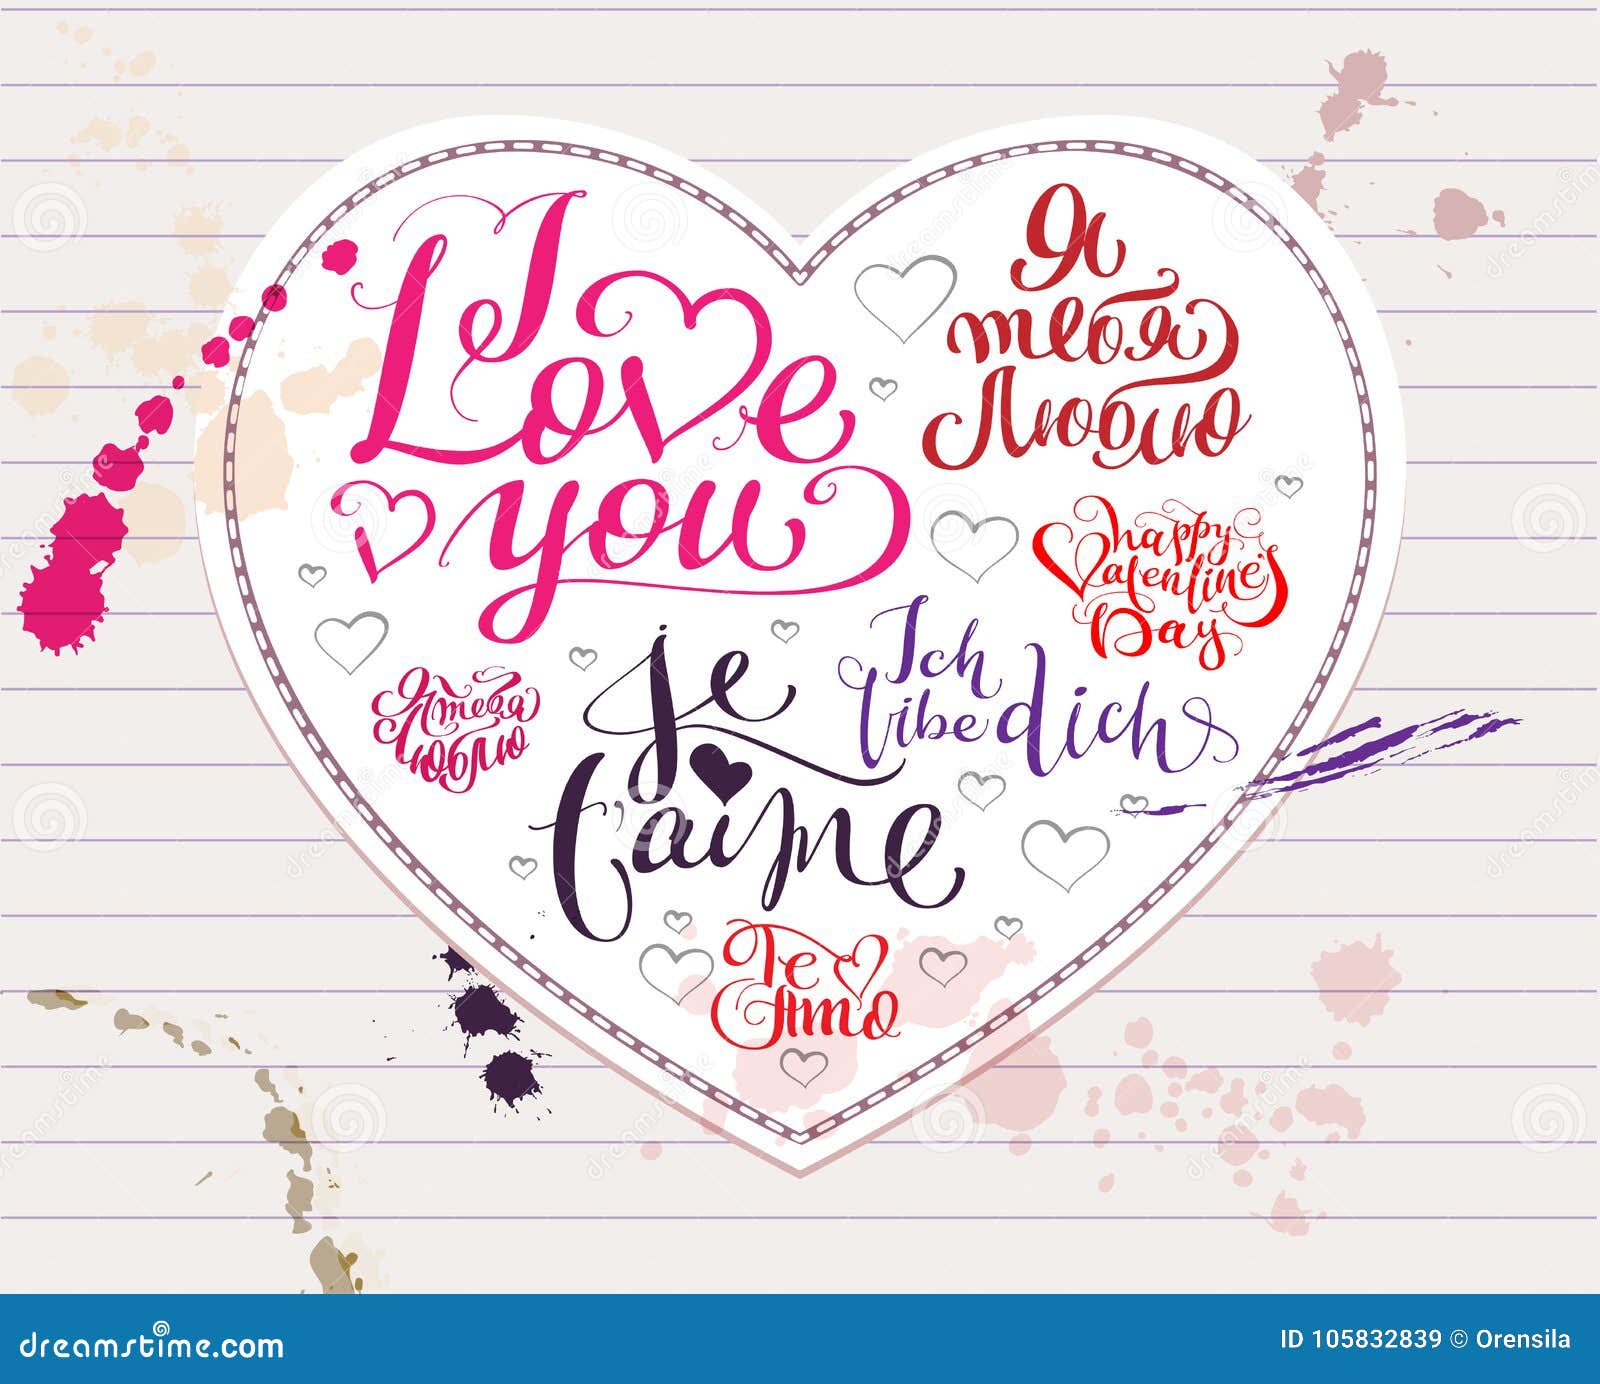 I
Love
you
Я
тебя
Люблю
happy
Valentine's
Day
Ich
libe dich
Я тебя
люблю
je
t'aime
Te
Amo
dreamstime.com
ID 105832839 © Orensila